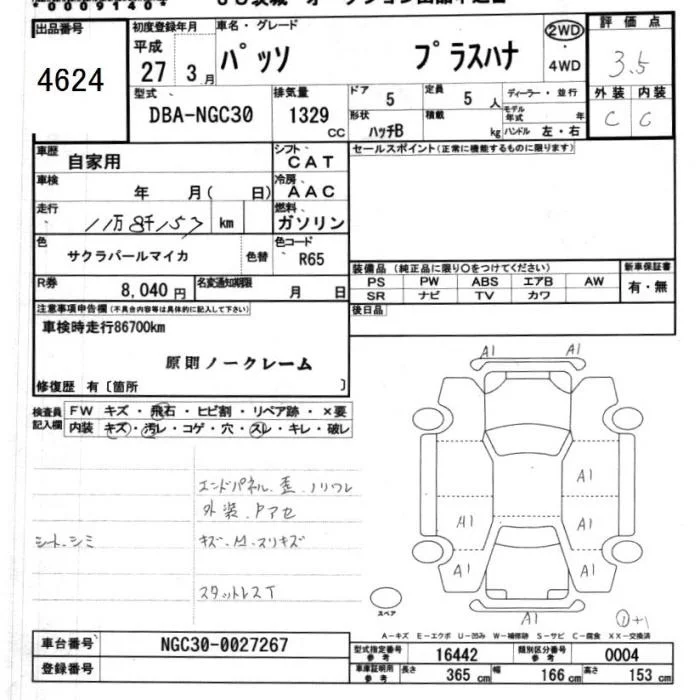 出品番号 4624
初度登録年月 平成 27 3月
車名・グレード パッソ プラスハナ
2WD・4WD
評価点 3.5
外装 内装
C C
型式 DBA-NGC30
排気量 1329 CC
ドア 5
定員 5 人
形状 ハッチB
積載 kg
ディーラー・並行
モデル年式 年
ハンドル 左・右
車歴 自家用
シフト CAT
セールスポイント (正常に機能するものに限ります)
車検 年 月( 日)
冷房 AAC
走行 km
燃料 ガソリン
色 サクラパールマイカ 色替
色コード R65
装備品 (純正品に限り〇をつけてください)
新車保証書 有・無
PS PW ABS エアB AW
SR ナビ TV カワ
R券 8,040円
名変通知期限 月 日
後日品
注意事項申告欄 (不具合内容等は具体的に記入して下さい)
車検時走行86700km
原則ノークレーム
修復歴 有〔箇所 〕
検査員記入欄
FW キズ・飛石・ヒビ割・リペア跡・×要
内装 キズ・汚レ・コゲ・穴・スレ・キレ・破レ
エンドパネル.歪.ノリワレ
外装.Pアセ
シート.シミ
キズ.M.スリキズ
スタットレスT
A1 A1
A1
A1 A1
A1 A1
A1
スペア
①+1
A-キズ E-エクボ U-凹み W-補修跡 S-サビ C-腐食 XX-交換済
車台番号 NGC30-0027267
登録番号
型式指定番号 参考 16442
類別区分番号 参考 0004
車庫証明用 参考 長さ 365 cm 幅 166 cm 高さ 153 cm